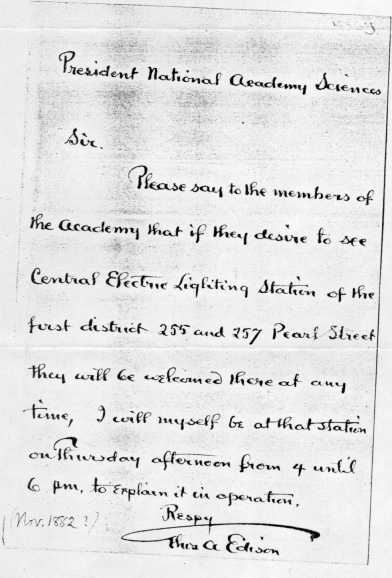 President National Academy Sciences
Sir.
Please say to the members of
the Academy that if they desire to see
Central Electric Lighting Station of the
first district 255 and 257 Pearl Street
they will be welcomed there at any
time, I will myself be at that station
on Thursday afternoon from 4 until
6 pm, to explain it in operation,
Respy
Thos A Edison
(Nov. 1882?)